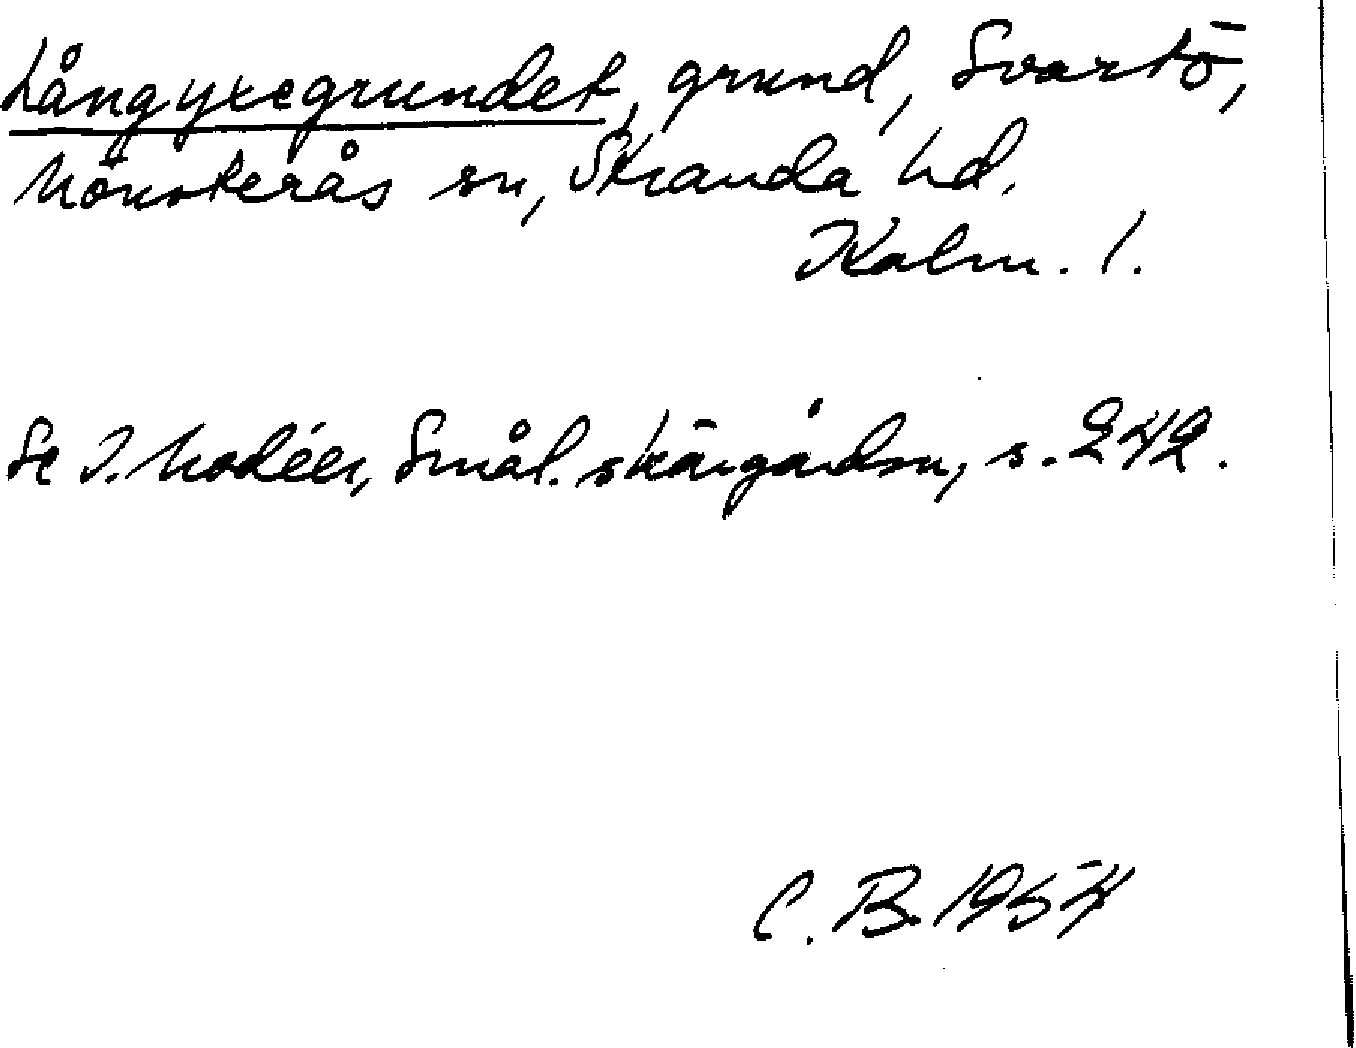 Långyxegrundet, grund, Svartö,
Mönsterås sn, Stranda hd.
Kalm. l.
Se I. Modéer, Smål. skärgårdsn, s. 242.
C. B. 1954